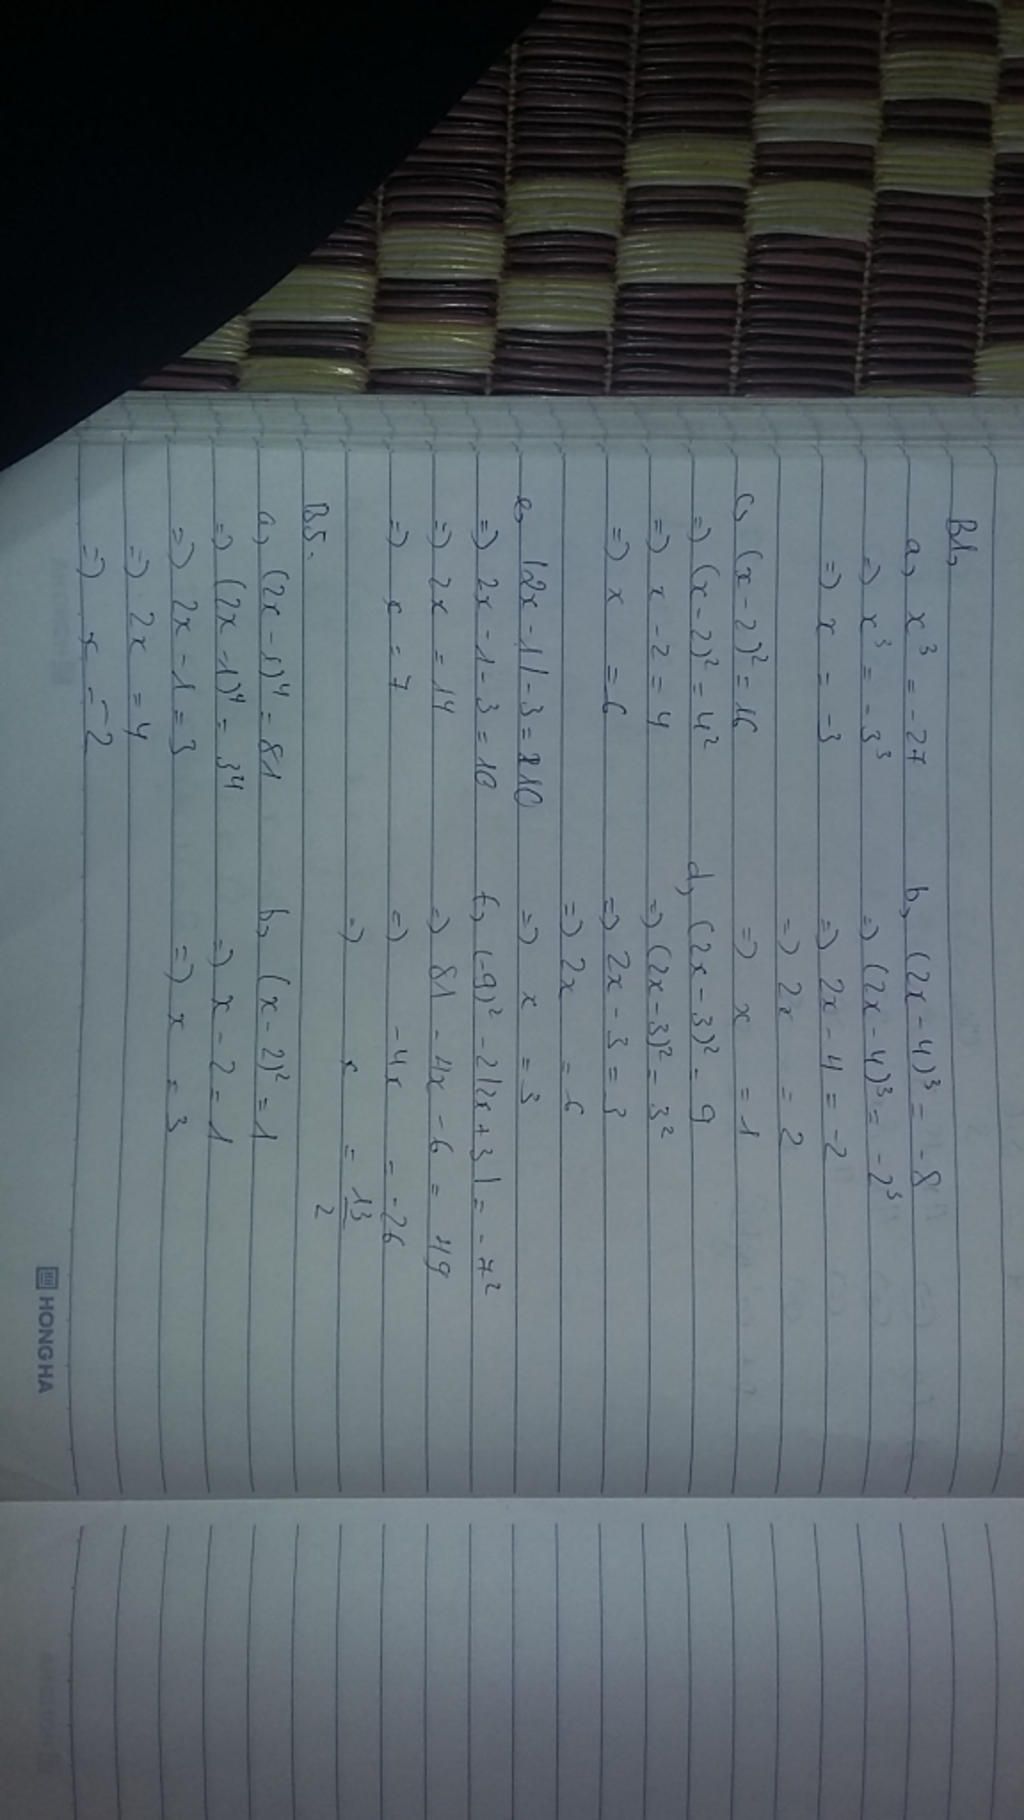 B1,
a, x³ = -27
=) x³ = -3³
=) x = -3
b, (2x - 4)³ = -8
=) (2x - 4)³ = -2³
=) 2x - 4 = -2
=) 2x = 2
=) x = 1
c, (x - 2)² = 16
=) (x - 2)² = 4²
=) x - 2 = 4
=) x = 6
d, (2x - 3)² = 9
=) (2x - 3)² = 3²
=) 2x - 3 = 3
=) 2x = 6
=) x = 3
e, |2x - 1| - 3 = 10
=) 2x - 1 - 3 = 10
=) 2x = 14
=) x = 7
f, (-9)² - 2|2x + 3| = -7²
=) 81 - 4x - 6 = 49
=) -4x = -26
=) x = 13/2
B5.
a, (2x - 1)⁴ = 81
=) (2x - 1)⁴ = 3⁴
=) 2x - 1 = 3
=) 2x = 4
=) x = 2
b, (x - 2)² = 1
=) x - 2 = 1
=) x = 3
HONG HA